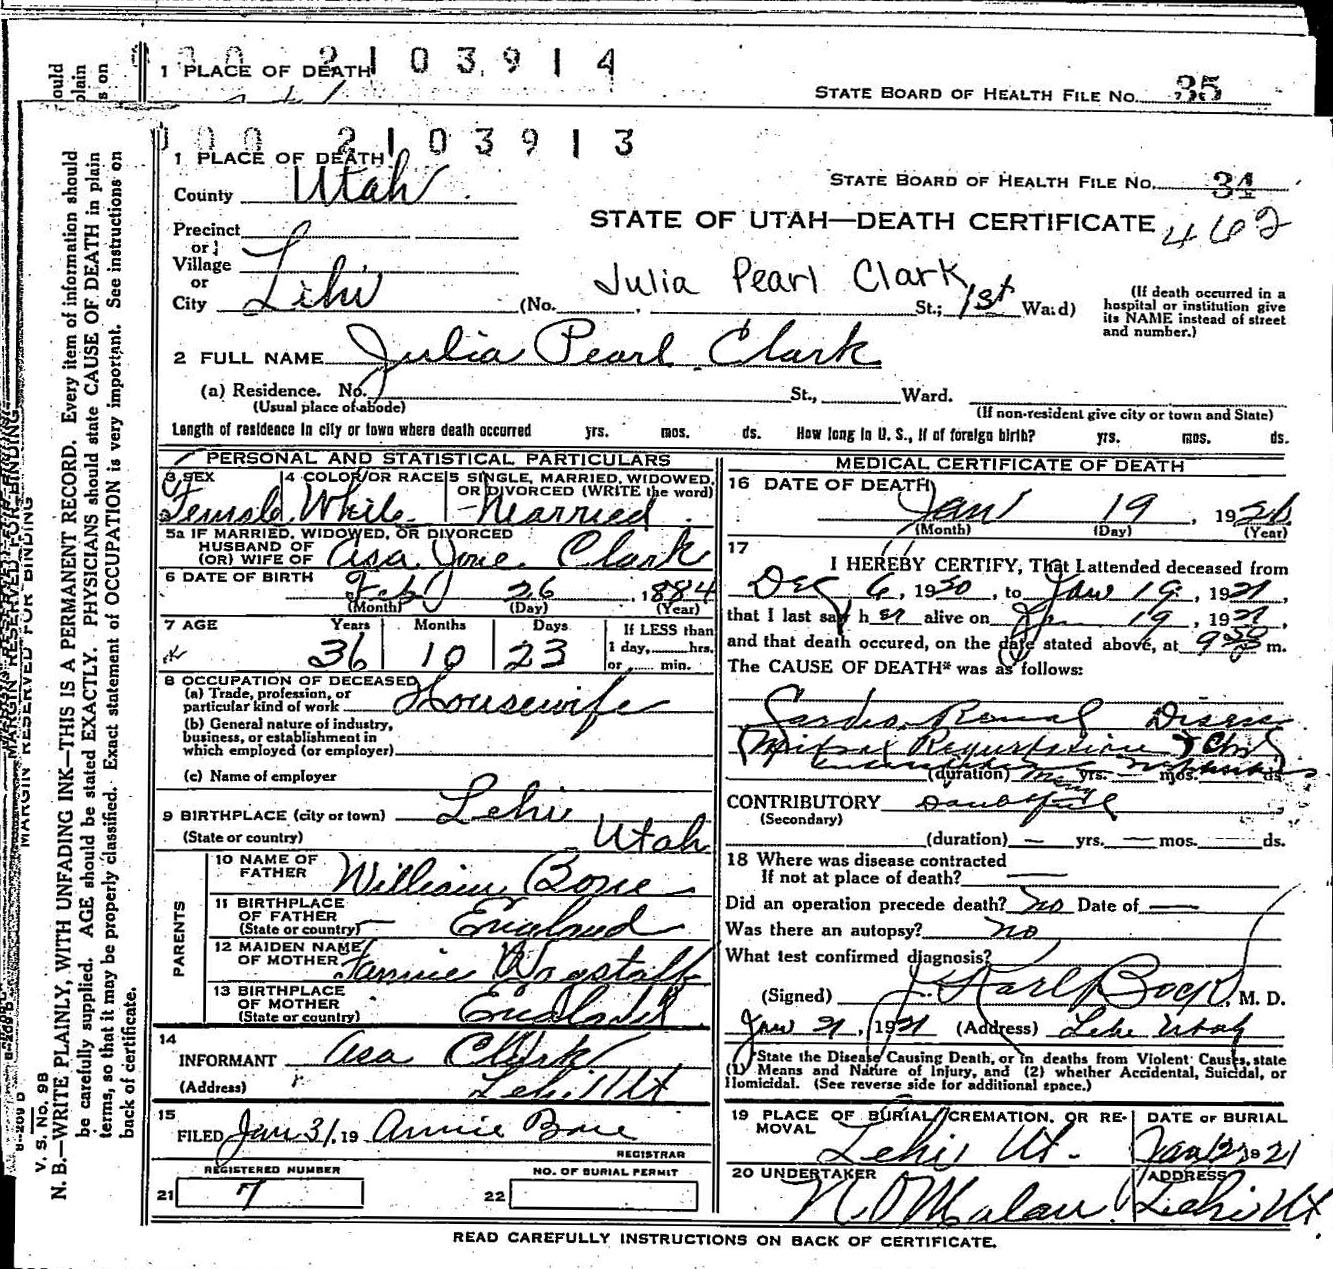 1 PLACE OF DEATH 2103914
STATE BOARD OF HEALTH FILE No. 35
000 2103913
1 PLACE OF DEATH
County Utah
STATE BOARD OF HEALTH FILE No. 34
STATE OF UTAH—DEATH CERTIFICATE 462
Precinct
or
Village
or
City Lehi
Julia Pearl Clark
(No. St.; 1st Ward)
(If death occurred in a
hospital or institution give
its NAME instead of street
and number.)
2 FULL NAME Julia Pearl Clark
(a) Residence. No. St., Ward.
(Usual place of abode)
(If non-resident give city or town and State)
Length of residence in city or town where death occurred yrs. mos. ds. How long in U. S., if of foreign birth? yrs. mos. ds.
PERSONAL AND STATISTICAL PARTICULARS
3 SEX
Female
4 COLOR OR RACE
White
5 SINGLE, MARRIED, WIDOWED,
OR DIVORCED (WRITE the word)
Married
5a IF MARRIED, WIDOWED, OR DIVORCED
HUSBAND OF
(OR) WIFE OF Asa Clark
6 DATE OF BIRTH Feb 26, 1884
(Month) (Day) (Year)
7 AGE Years Months Days
36 10 23
If LESS than
1 day, hrs.
or min.
8 OCCUPATION OF DECEASED
(a) Trade, profession, or
particular kind of work Housewife
(b) General nature of industry,
business, or establishment in
which employed (or employer)
(c) Name of employer
9 BIRTHPLACE (city or town) Lehi
(State or country) Utah
PARENTS
10 NAME OF
FATHER William Bone
11 BIRTHPLACE
OF FATHER
(State or country) England
12 MAIDEN NAME
OF MOTHER Fannie Wagstaff
13 BIRTHPLACE
OF MOTHER
(State or country) England
14
INFORMANT Asa Clark
(Address) Lehi Ut
15
FILED Jan 31, 19 Annie Bone
REGISTRAR
REGISTERED NUMBER
21 7
NO. OF BURIAL PERMIT
22
MEDICAL CERTIFICATE OF DEATH
16 DATE OF DEATH
Jan 19, 19
(Month) (Day) (Year)
17
I HEREBY CERTIFY, That I attended deceased from
Dec 6, 1920, to Jan 19, 1921,
that I last saw her alive on Jan 19, 1921,
and that death occured, on the date stated above, at 9 30 m.
The CAUSE OF DEATH* was as follows:
Cardio Renal Disease
Mitral Regurgitation &
(duration) many yrs. — mos. ds.
CONTRIBUTORY
(Secondary)
(duration) — yrs. — mos. ds.
18 Where was disease contracted
If not at place of death? —
Did an operation precede death? no Date of —
Was there an autopsy? no
What test confirmed diagnosis?
(Signed) Karl M. D.
Jan 21, 1921 (Address) Lehi Utah
*State the Disease Causing Death, or in deaths from Violent Causes, state
(1) Means and Nature of Injury, and (2) whether Accidental, Suicidal, or
Homicidal. (See reverse side for additional space.)
19 PLACE OF BURIAL, CREMATION, OR RE-
MOVAL
Lehi Ut.
DATE OF BURIAL
Jan 1921
20 UNDERTAKER
ADDRESS
Lehi Ut
READ CAREFULLY INSTRUCTIONS ON BACK OF CERTIFICATE.
MARGIN RESERVED FOR BINDING
V. S. NO. 9B
N. B.—WRITE PLAINLY, WITH UNFADING INK—THIS IS A PERMANENT RECORD. Every item of information should
be carefully supplied. AGE should be stated EXACTLY. PHYSICIANS should state CAUSE OF DEATH in plain
terms, so that it may be properly classified. Exact statement of OCCUPATION is very important. See instructions on
back of certificate.